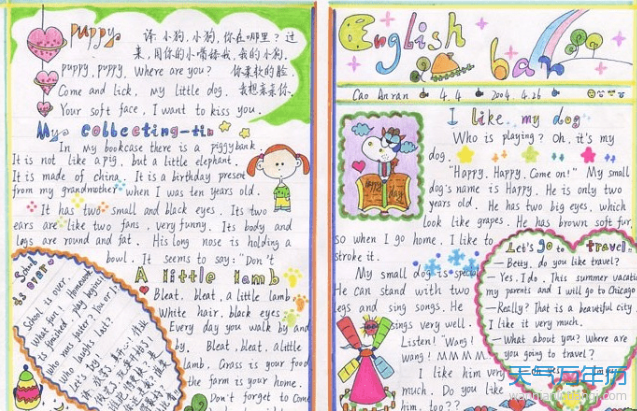 puppy
译：小狗，小狗，你在哪里？过
来，用你的小嘴舔我，我的小狗。
puppy, puppy, Where are you? 你柔软的脸
Come and lick, my little dog. 我想亲亲你
Your soft face, I want to kiss you.
My collecting-tin
In my bookcase there is a piggybank.
It is not like a pig, but a little elephant.
It is made of china. It is a birthday present
from my grandmother when I was ten years old.
It has two small and black eyes. Its two
ears are like two fans, very funny. Its body and
legs are round and fat. His long nose is holding a
bowl. It seems to say: "Don't
School
is over
School is over.
What fun! Homework
is finished, play begins!
Who runs faster, You or
who laughs last?
Let's
A little lamb
Bleat, bleat, a little lamb,
White hair, black eyes.
Every day you walk by and
by. Bleat, bleat, a little
lamb. Grass is your food
the farm is your home.
Don't forget to come
English
bar
Cao Anran 4.4 2004.4.26
I like my dog
Who is playing? Oh, it's my
dog.
"Happy, Happy, Come on!" My small
dog's name is Happy. He is only two
years old. He has two big eyes, which
look like grapes. He has brown soft fur,
so when I go home, I like to
stroke it.
My small dog is special
He can stand with two
legs and sing songs. He
sings very well.
Listen! "Wang!
wang! MMMMM
I like him very
much. Do you like
him, too??
Happy
day
Let's go to travel
— Betty, do you like travel?
— Yes, I do. This summer vacati
my parents and I will go to Chicago
— Really? That is a beautiful city
I like it very much.
— What about you? Where are
you going to travel?
天气万年历